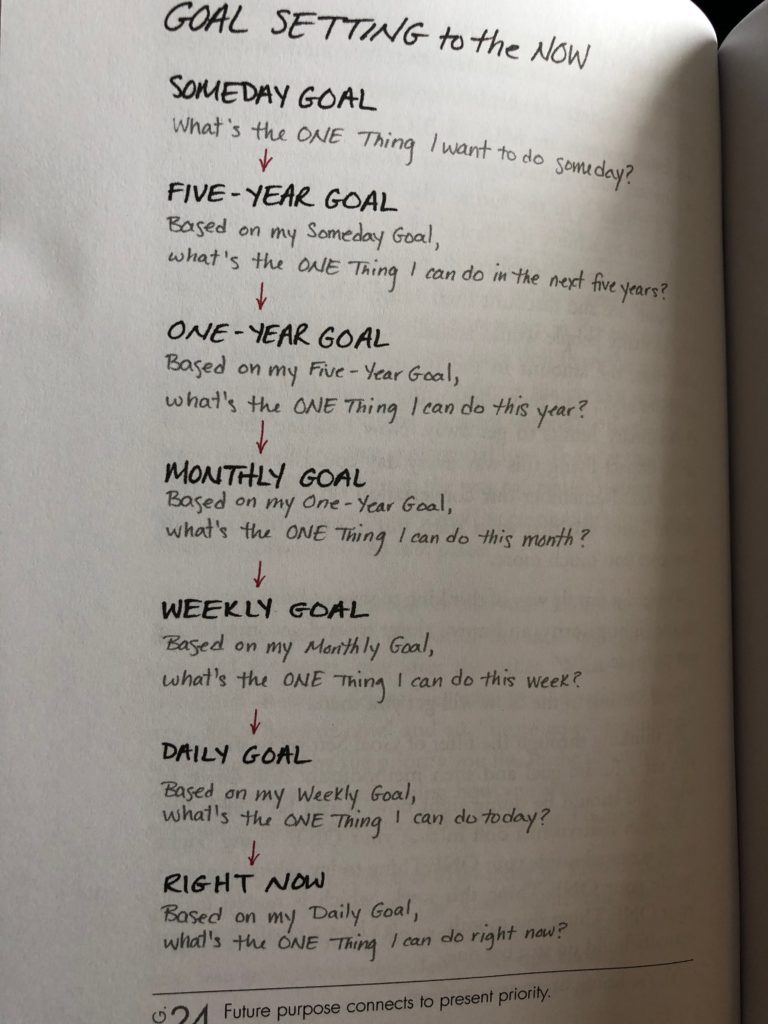 GOAL SETTING to the NOW
SOMEDAY GOAL
What's the ONE Thing I want to do someday?
FIVE-YEAR GOAL
Based on my Someday Goal,
what's the ONE Thing I can do in the next five years?
ONE-YEAR GOAL
Based on my Five-Year Goal,
what's the ONE Thing I can do this year?
MONTHLY GOAL
Based on my One-Year Goal,
what's the ONE Thing I can do this month?
WEEKLY GOAL
Based on my Monthly Goal,
what's the ONE Thing I can do this week?
DAILY GOAL
Based on my Weekly Goal,
what's the ONE Thing I can do today?
RIGHT NOW
Based on my Daily Goal,
what's the ONE Thing I can do right now?
24 Future purpose connects to present priority.